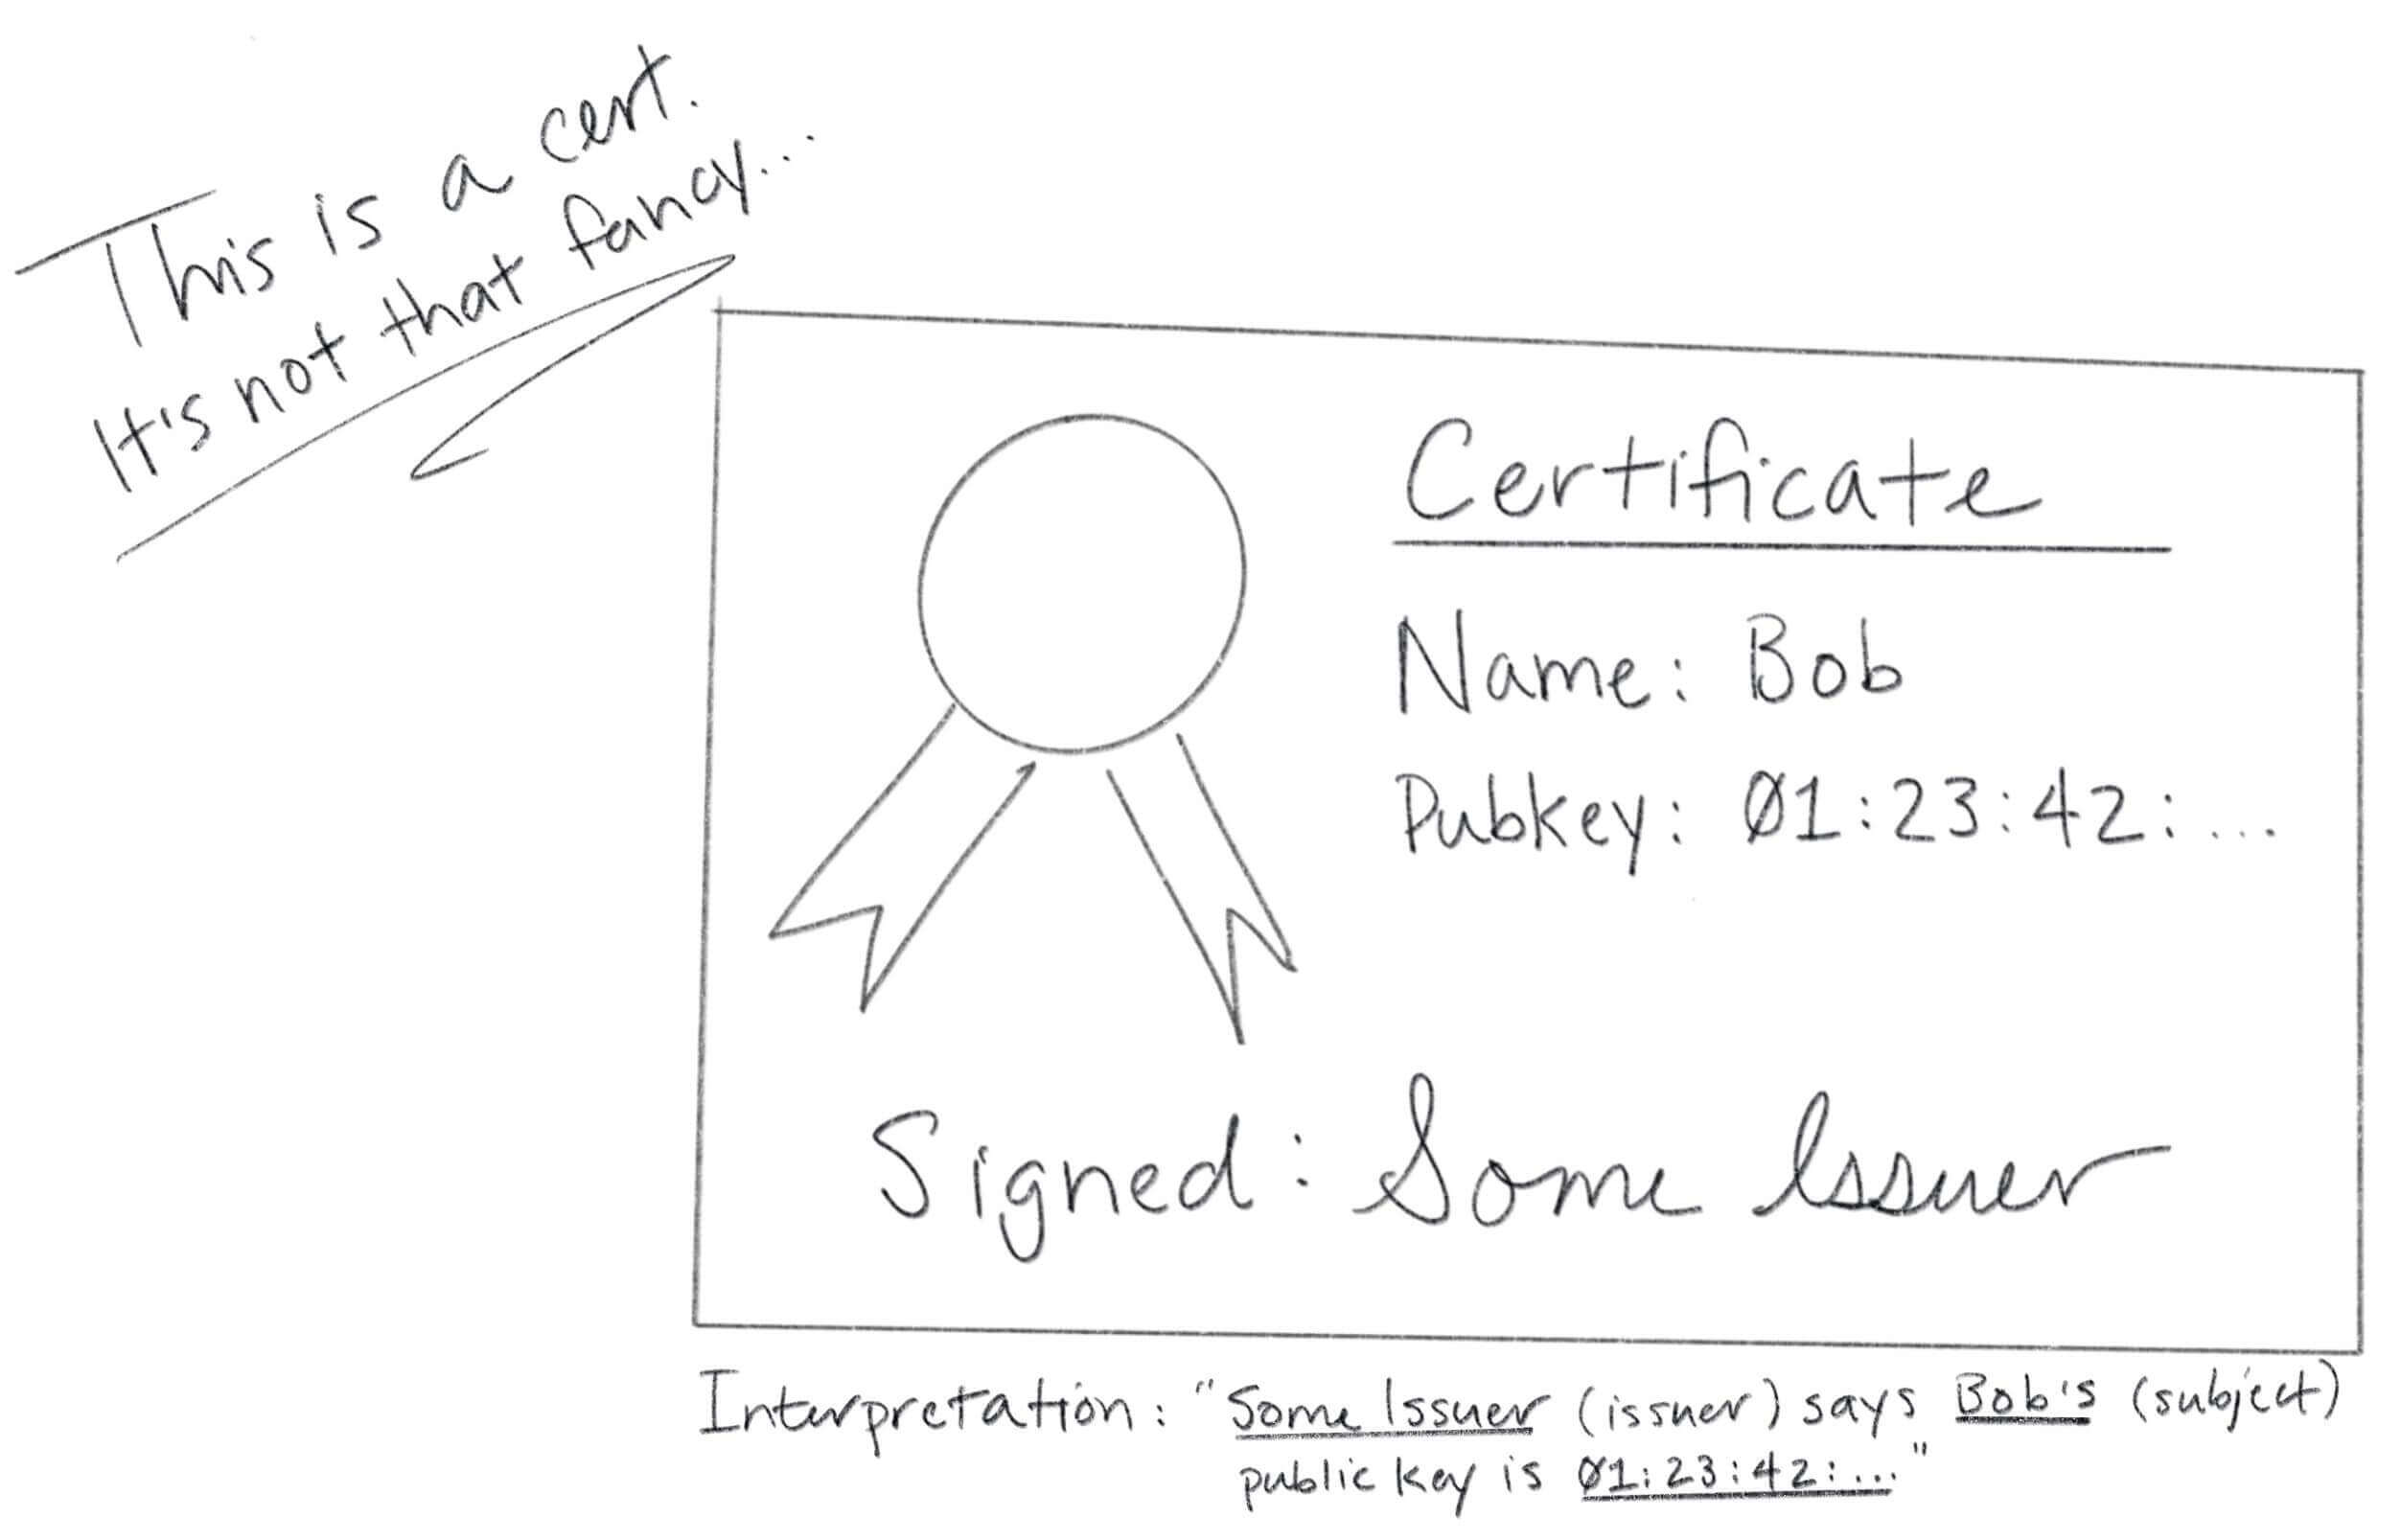 This is a cert.
It's not that fancy...
Certificate
Name: Bob
Pubkey: 01:23:42:...
Signed: Some Issuer
Interpretation: "Some Issuer (issuer) says Bob's (subject)
public key is 01:23:42:..."